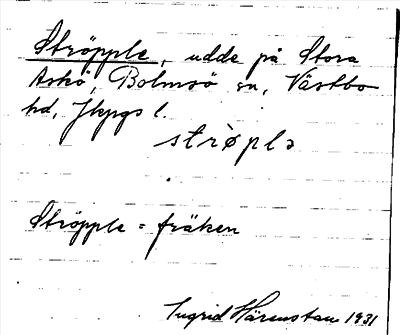 Ströpple, udde på Stora
Askö, Bolmsö sn, Västbo
hd, Jkpgs l.
strøplə
Ströpple = fräken
Ingrid Härenstam 1931